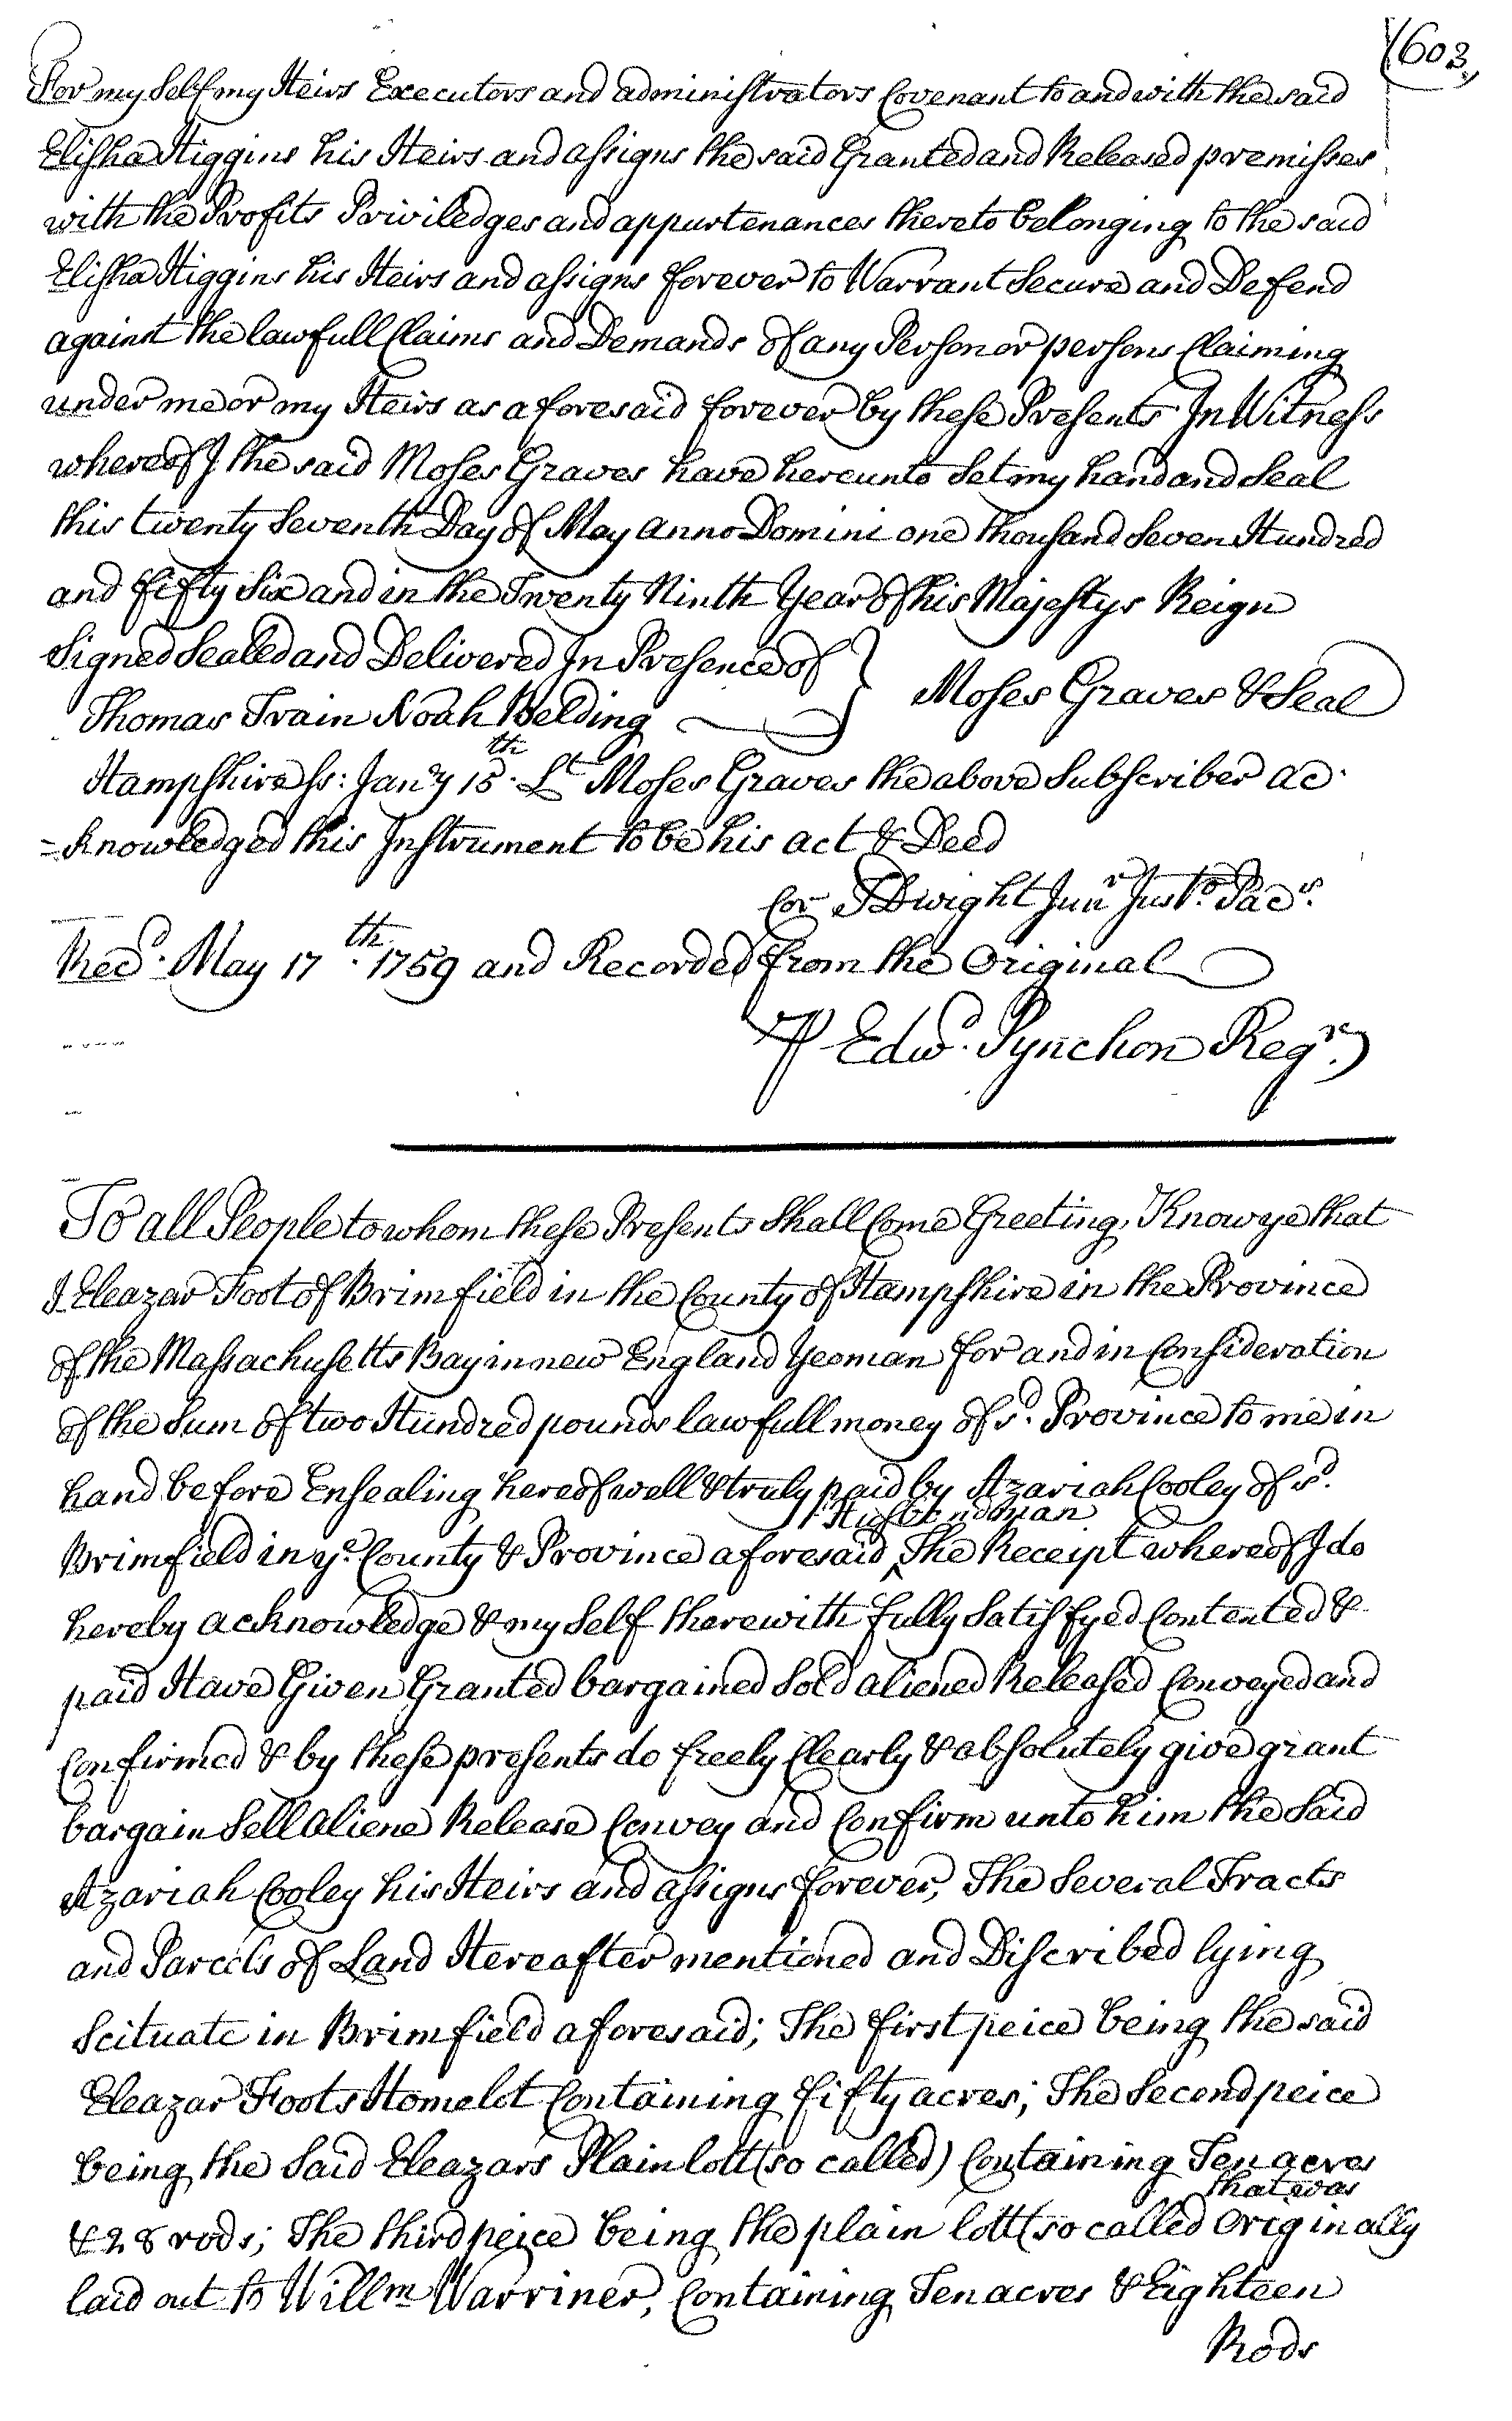 (603,
For my self my Heirs Executors and administrators Covenant to and with the said
Elisha Higgins his Heirs and assigns the said Granted and Released premisses
with the Profits Priviledges and appurtenances thereto belonging to the said
Elisha Higgins his Heirs and assigns forever to Warrant Secure and Defend
against the lawfull Claims and Demands of any Person or persons Claiming
under me or my Heirs as aforesaid forever by these Presents In Witness
whereof I the said Moses Graves have hereunto Set my hand and Seal
this twenty Seventh Day of May anno Domini one thousand Seven Hundred
and fifty Six and in the Twenty Ninth Year of his Majestys Reign
Signed Sealed and Delivered In Presence of } Moses Graves & Seal
Thomas Train Noah Belding
Hampshire ss: Jany 15th. Lt Moses Graves the above Subscriber ac
=knowledged this Instrument to be his act & Deed
Cor T Dwight Junr Justo Pacs.
Recd. May 17th. 1759 and Recorded from the Original
P Edwd. Pynchon Regr.
To all People to whom these Presents Shall Come Greeting, Know ye that
I Eleazar Foot of Brimfield in the County of Hampshire in the Province
of the Massachusetts Bay in new England Yeoman for and in Consideration
of the Sum of two Hundred pounds lawfull money of sd. Province to me in
hand before Ensealing hereof well & truly paid by Azariah Cooley of sd.
Husbandman
Brimfield in ye. County & Province aforesaid ‸ The Receipt whereof I do
hereby acknowledge & my Self therewith fully Satisfyed Contented &
paid Have Given Granted bargained Sold aliened Released Conveyed and
Confirmed & by these presents do freely Clearly & absolutely give grant
bargain Sell aliene Release Convey and Confirm unto him the Said
Azariah Cooley his Heirs and assigns forever, The Several Tracts
and Parcels of Land Hereafter mentioned and Discribed lying
Scituate in Brimfield aforesaid; The first peice being the said
Eleazar Foots Homelot Containing fifty acres; The Second peice
being the Said Eleazars Plain lott (so called) Containing Ten acres
that was
& 28 rods; The third peice being the plain lott (so called Originally
laid out to Willm Warriner, Containing Ten acres & Eighteen
Rods